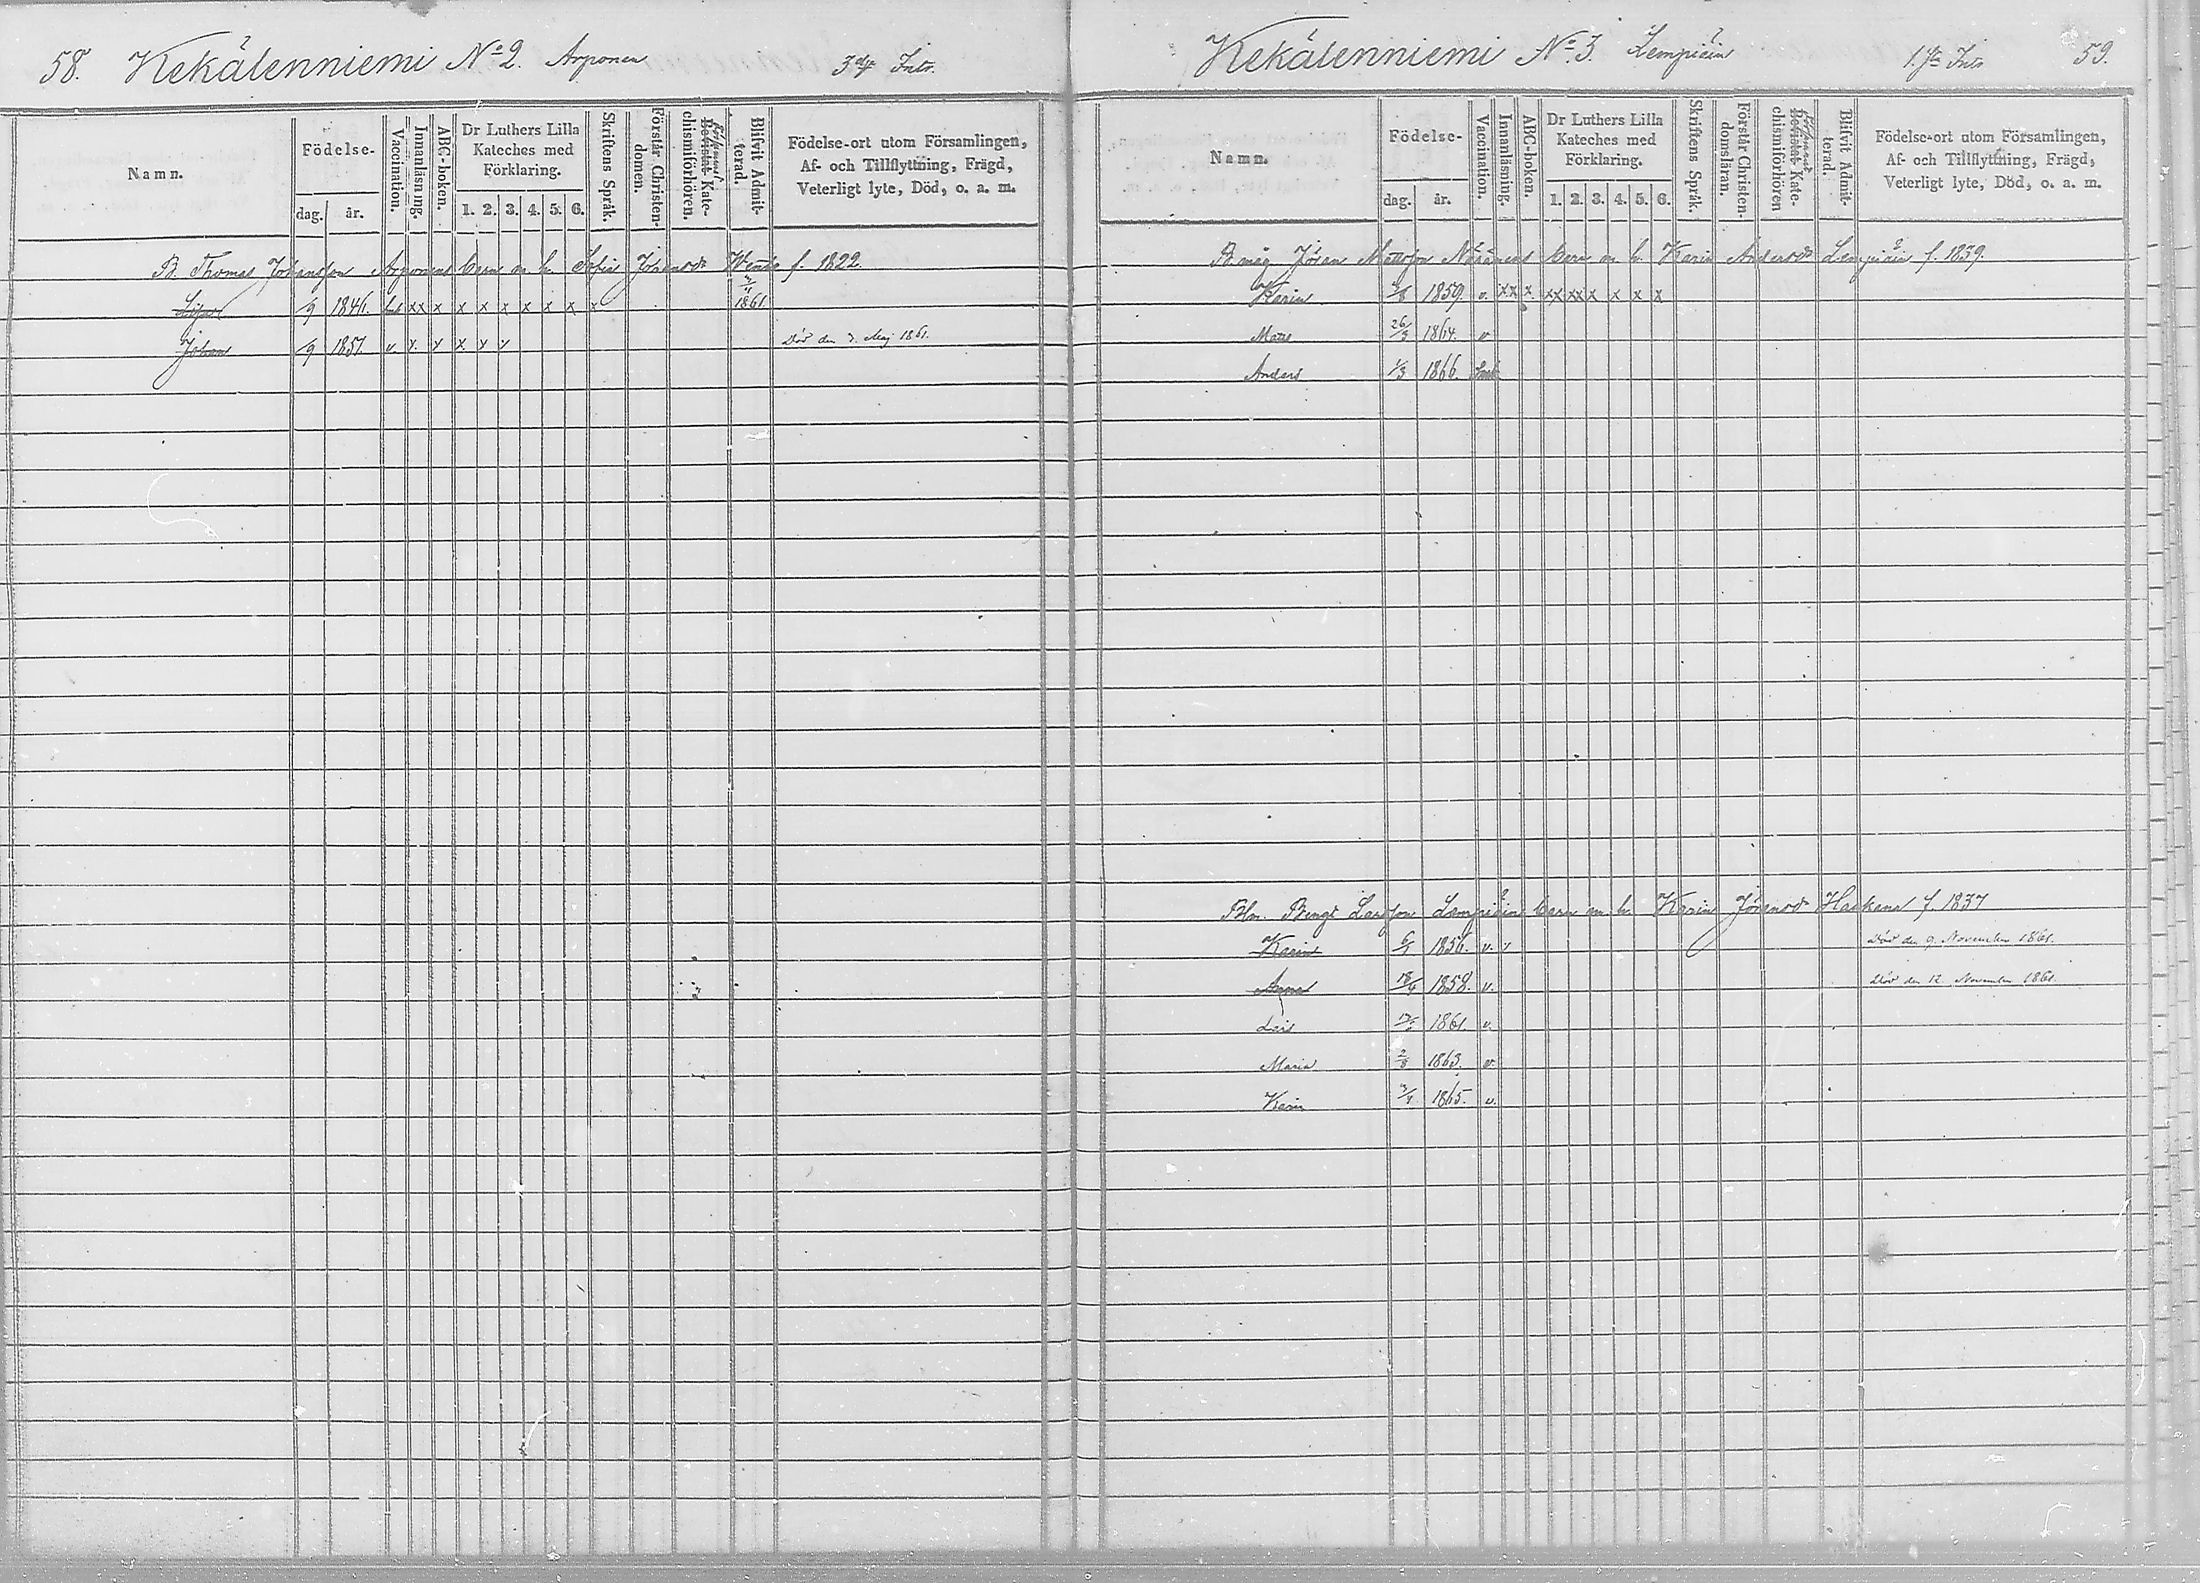 58. Kekälenniemi No 2. Arponen 3dje Intr.
Namn.
Födelse-
dag. år.
Vaccination.
Innanläsning.
ABC-boken.
Dr Luthers Lilla Kateches med Förklaring.
1. 2. 3. 4. 5. 6.
Skriftens Språk.
Förstår Christendomen.
Bevistat Katechismiförhören.
Blifvit Admitterad.
Födelse-ort utom Församlingen,
Af- och Tillflyttning, Frägd,
Veterligt lyte, Död, o. a. m.
B. Thomas Johansson Arponens barn m. h. Sofia Johansdr f. 1822.
9 1846. xx x x x x x x x x 1861
Johan 9 1851. v. x. x x x x Död den 7. Maj 1861.
Kekälenniemi No 3. Lempiäin 1:sta Intr 59.
Namn.
Födelse-
dag. år.
Vaccination.
Innanläsning.
ABC-boken.
Dr Luthers Lilla Kateches med Förklaring.
1. 2. 3. 4. 5. 6.
Skriftens Språk.
Förstår Christendomsläran.
Bevistat Katechismiförhören
Blifvit Admitterad.
Födelse-ort utom Församlingen,
Af- och Tillflyttning, Frägd,
Veterligt lyte, Död, o. a. m.
B. måg Jöran Mattsson Näränens barn m. h. Karin Andersdr Lempiäin f. 1839.
Karin 1859. v. xx x xx xx x x x x
Matts 26/3 1864. v
Anders 1/3 1866.
Bengt Larsson Lempiäins barn m. h. Karin Jöransdr f. 1837
Karin 1856. v. x Död den 9. November 1861.
Anna 1858. v. Död den 12. November 1861.
Lars 1861. v.
Maria 2/8 1863. v
Karin 1865. v.